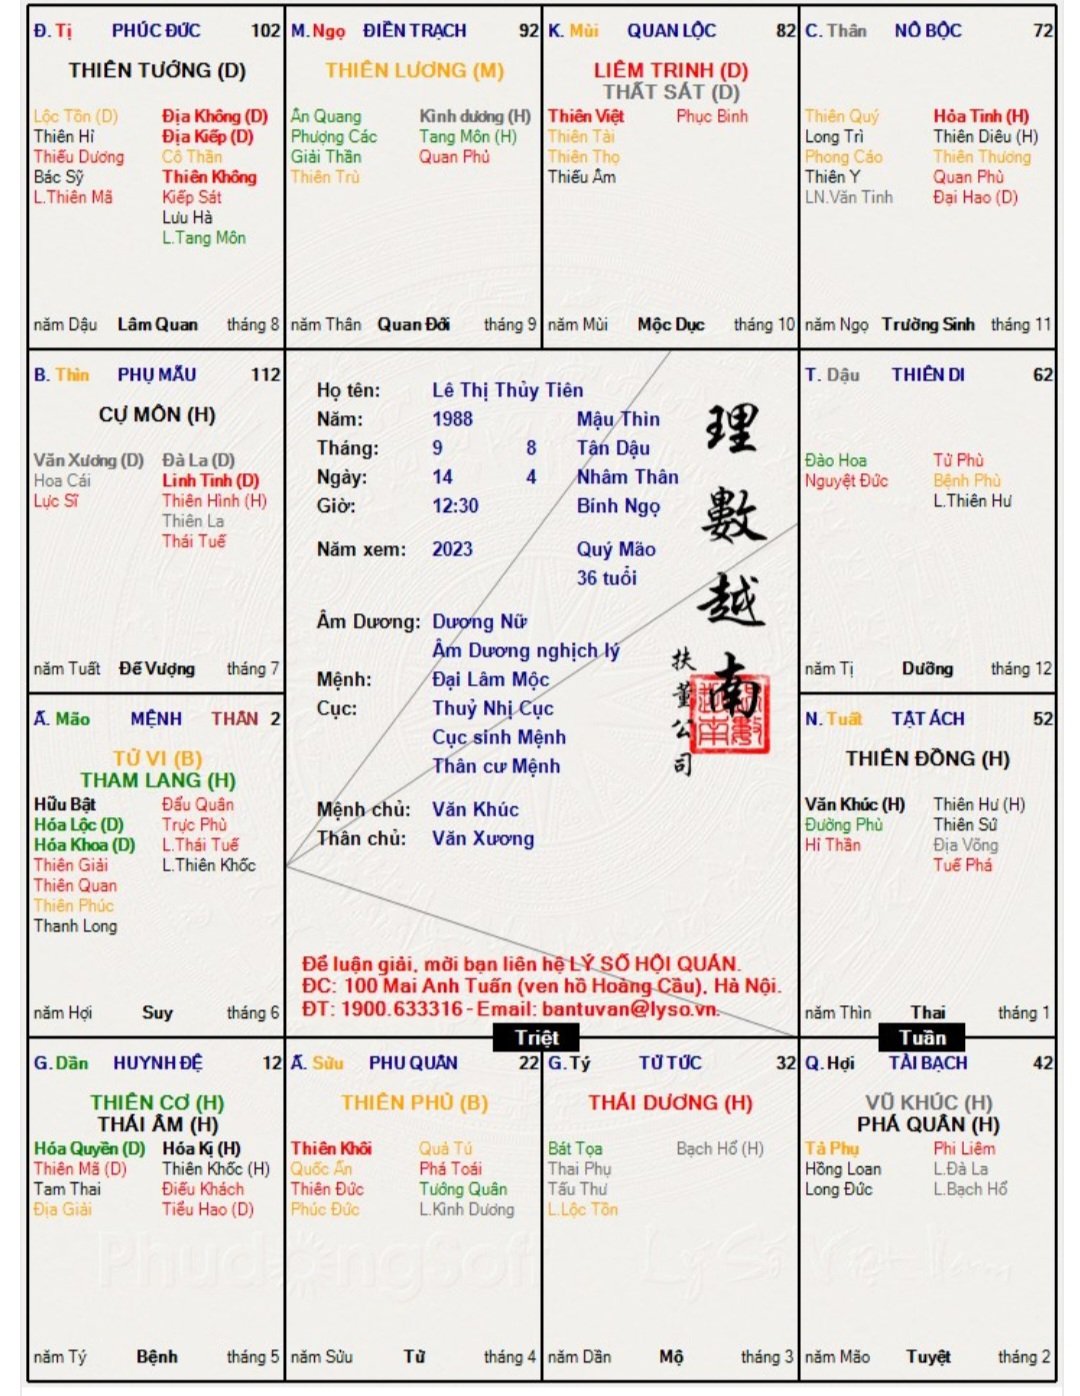 Đ. Tị PHÚC ĐỨC 102
THIÊN TƯỚNG (D)
Lộc Tồn (D) Địa Không (D)
Thiên Hỉ Địa Kiếp (D)
Thiếu Dương Cô Thần
Bác Sỹ Thiên Không
L.Thiên Mã Kiếp Sát
Lưu Hà
L.Tang Môn
năm Dậu Lâm Quan tháng 8
M. Ngọ ĐIỀN TRẠCH 92
THIÊN LƯƠNG (M)
Ân Quang Kình dương (H)
Phượng Các Tang Môn (H)
Giải Thần Quan Phủ
Thiên Trù
năm Thân Quan Đới tháng 9
K. Mùi QUAN LỘC 82
LIÊM TRINH (D)
THẤT SÁT (D)
Thiên Việt Phục Binh
Thiên Tài
Thiên Thọ
Thiếu Âm
năm Mùi Mộc Dục tháng 10
C. Thân NÔ BỘC 72
Thiên Quý Hỏa Tinh (H)
Long Trì Thiên Diêu (H)
Phong Cáo Thiên Thương
Thiên Y Quan Phù
LN.Văn Tinh Đại Hao (D)
năm Ngọ Trường Sinh tháng 11
B. Thìn PHỤ MẪU 112
CỰ MÔN (H)
Văn Xương (D) Đà La (D)
Hoa Cái Linh Tinh (D)
Lực Sĩ Thiên Hình (H)
Thiên La
Thái Tuế
năm Tuất Đế Vượng tháng 7
Họ tên: Lê Thị Thủy Tiên
Năm: 1988 Mậu Thìn
Tháng: 9 8 Tân Dậu
Ngày: 14 4 Nhâm Thân
Giờ: 12:30 Bính Ngọ
Năm xem: 2023 Quý Mão
36 tuổi
Âm Dương: Dương Nữ
Âm Dương nghịch lý
Mệnh: Đại Lâm Mộc
Cục: Thuỷ Nhị Cục
Cục sinh Mệnh
Thân cư Mệnh
Mệnh chủ: Văn Khúc
Thân chủ: Văn Xương
理數越南
扶董公司
Để luận giải, mời bạn liên hệ LÝ SỐ HỘI QUÁN.
ĐC: 100 Mai Anh Tuấn (ven hồ Hoàng Cầu), Hà Nội.
ĐT: 1900.633316 - Email: bantuvan@lyso.vn.
T. Dậu THIÊN DI 62
Đào Hoa Tử Phù
Nguyệt Đức Bệnh Phù
L.Thiên Hư
năm Tị Dưỡng tháng 12
Ấ. Mão MỆNH THÂN 2
TỬ VI (B)
THAM LANG (H)
Hữu Bật Đẩu Quân
Hóa Lộc (D) Trực Phù
Hóa Khoa (D) L.Thái Tuế
Thiên Giải L.Thiên Khốc
Thiên Quan
Thiên Phúc
Thanh Long
năm Hợi Suy tháng 6
N. Tuất TẬT ÁCH 52
THIÊN ĐỒNG (H)
Văn Khúc (H) Thiên Hư (H)
Đường Phù Thiên Sứ
Hỉ Thần Địa Võng
Tuế Phá
năm Thìn Thai tháng 1
Triệt
Tuần
G. Dần HUYNH ĐỆ 12
THIÊN CƠ (H)
THÁI ÂM (H)
Hóa Quyền (D) Hóa Kị (H)
Thiên Mã (D) Thiên Khốc (H)
Tam Thai Điếu Khách
Địa Giải Tiểu Hao (D)
năm Tý Bệnh tháng 5
Ấ. Sửu PHU QUÂN 22
THIÊN PHỦ (B)
Thiên Khôi Quả Tú
Quốc Ấn Phá Toái
Thiên Đức Tướng Quân
Phúc Đức L.Kình Dương
năm Sửu Tử tháng 4
G. Tý TỬ TỨC 32
THÁI DƯƠNG (H)
Bát Tọa Bạch Hổ (H)
Thai Phụ
Tấu Thư
L.Lộc Tồn
năm Dần Mộ tháng 3
Q. Hợi TÀI BẠCH 42
VŨ KHÚC (H)
PHÁ QUÂN (H)
Tả Phụ Phi Liêm
Hồng Loan L.Đà La
Long Đức L.Bạch Hổ
năm Mão Tuyệt tháng 2
PhudongSoft
Lý Số Việt Nam